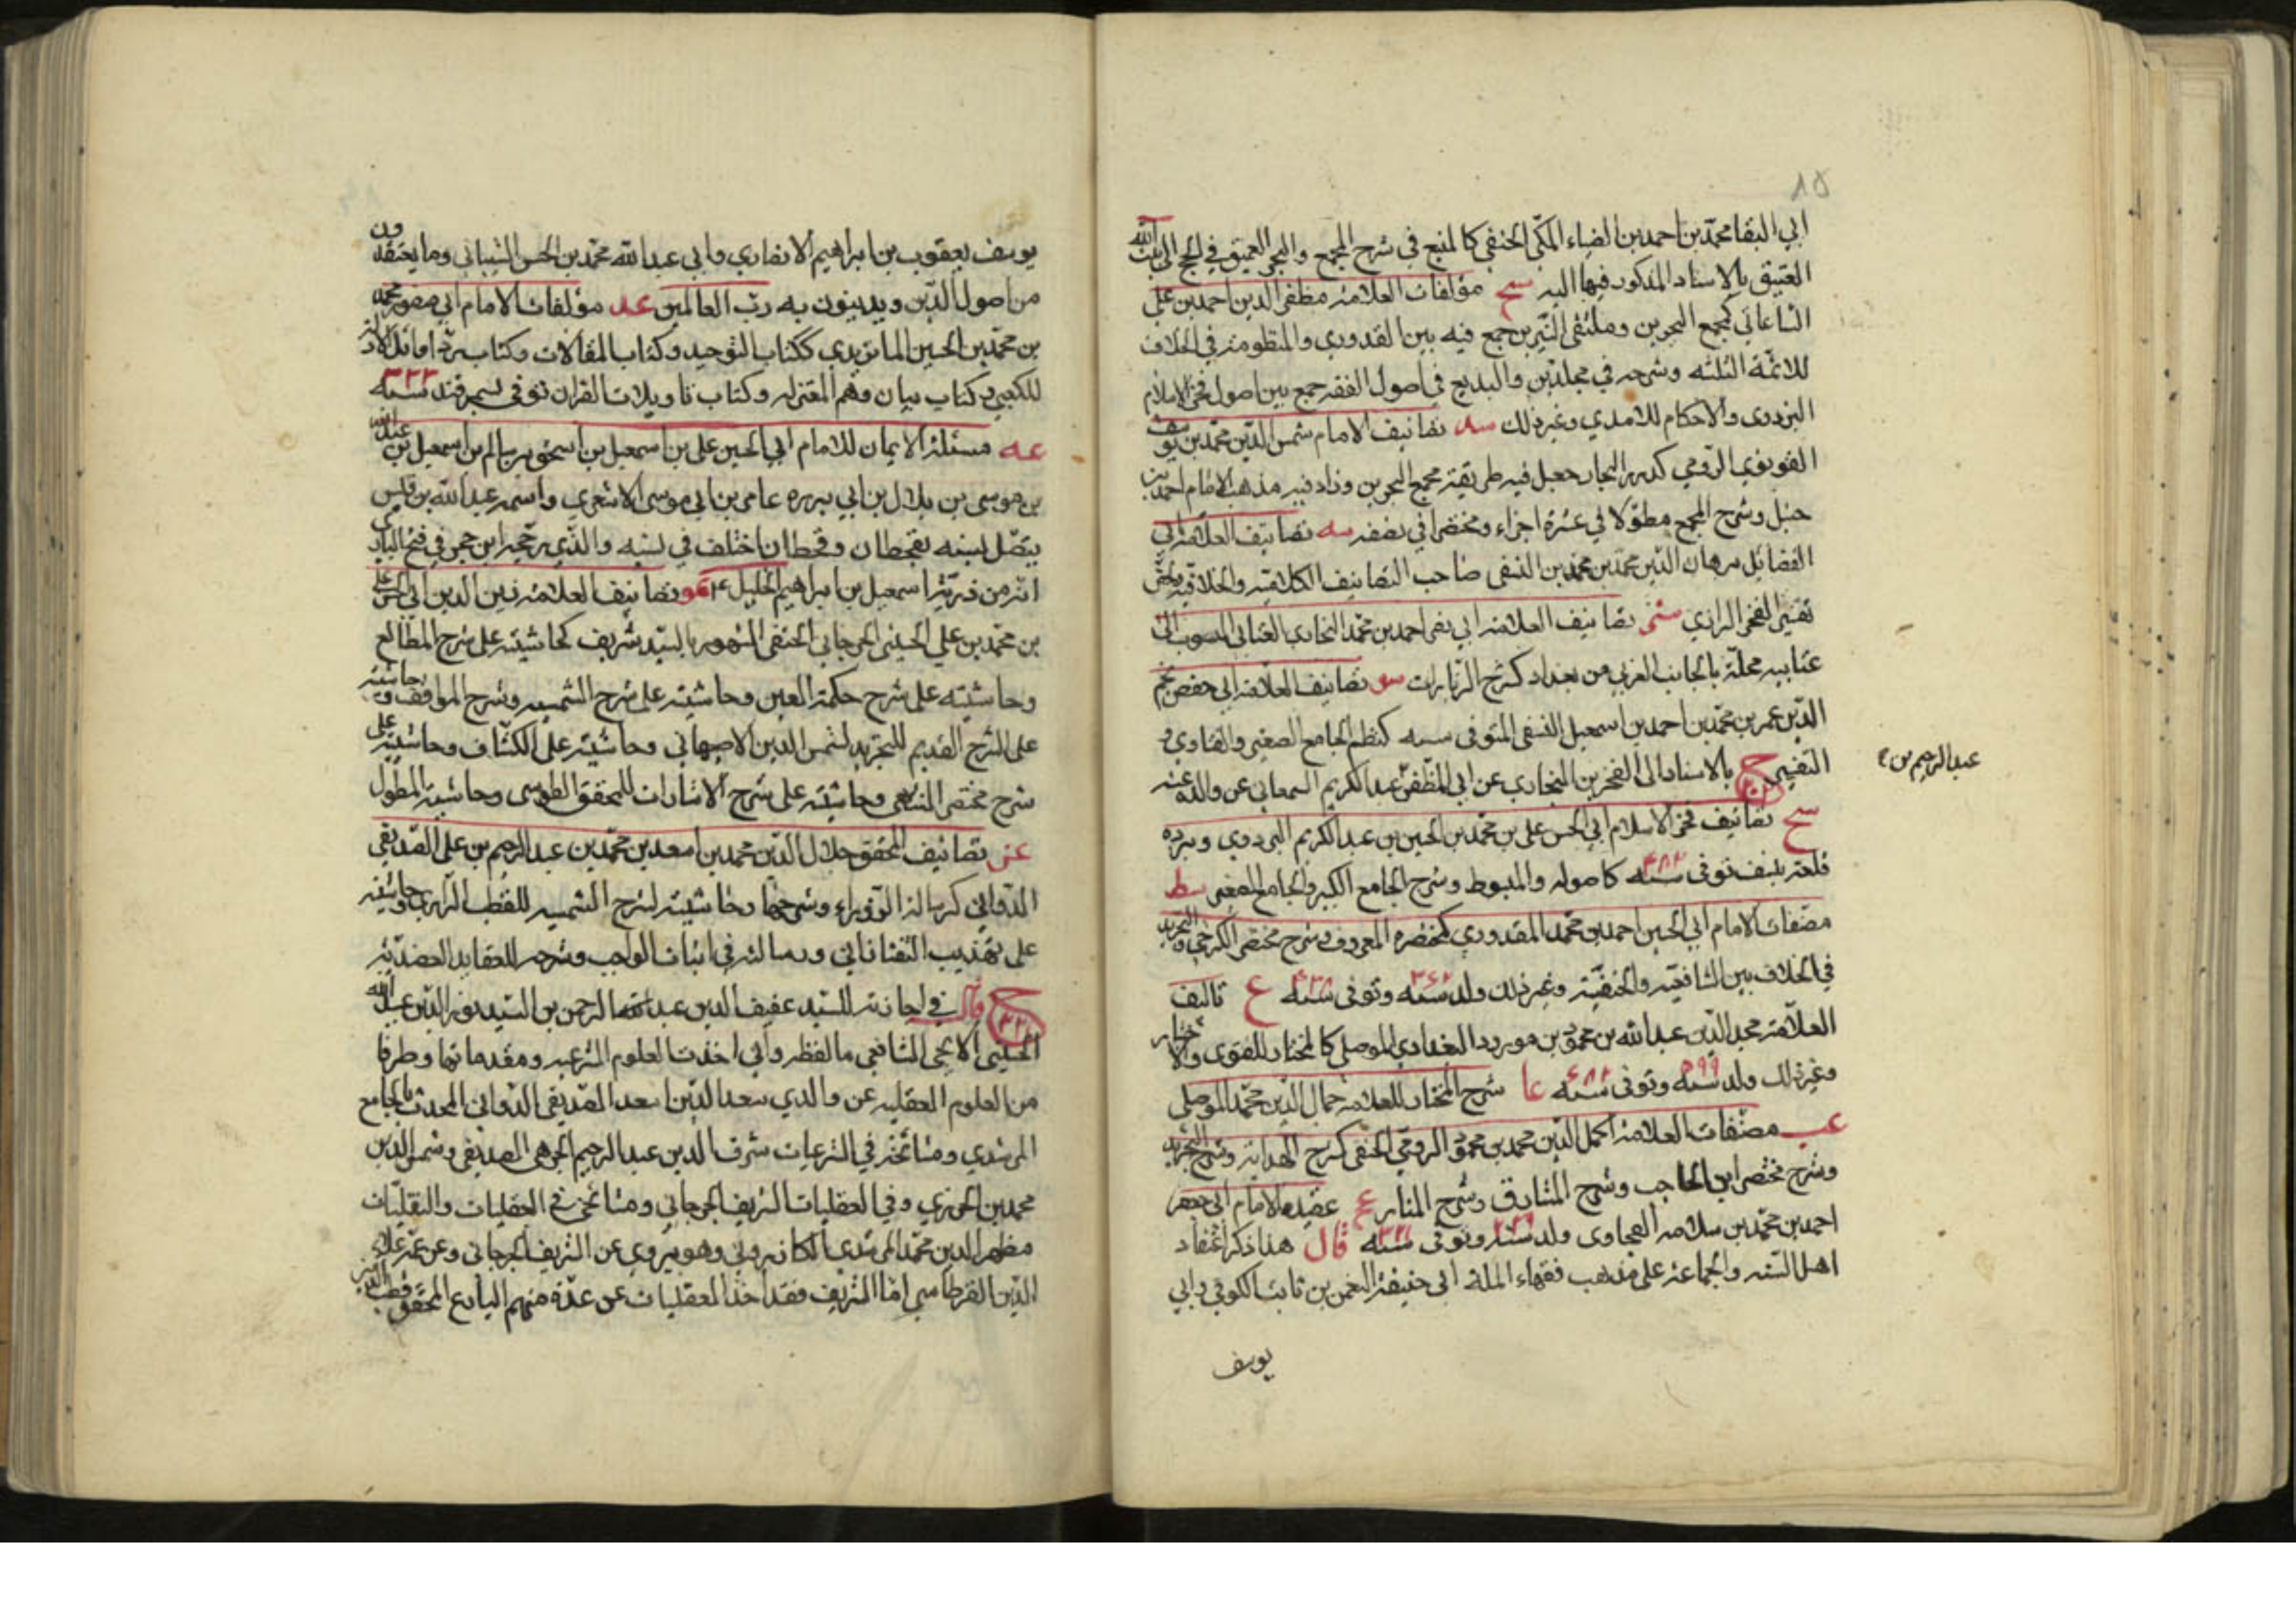 ١٥
ابي البقا محمد بن احمد بن الضياء المكي الحنفي كالمنبع في شرح المجمع والبحر العميق في الحج الى بيت الله
العتيق بالاسناد المذكور فيها اليه سج مؤلفات العلامة مظفر الدين احمد بن علي
الساعاتي كمجمع البحرين وملتقى النيرين جمع فيه بين القدوري والمنظومة في الخلاف
للائمة الثلثه وشرحه في مجلدين والبديع في اصول الفقه جمع بين اصول فخر الاسلام
البزدوى والاحكام للامدي وغير ذلك سد تصانيف الامام شمس الدين محمد بن يوسف
القونوي الرومي كدرر البحار جعل فيه طريقة مجمع البحرين وزاد فيه مذهب الامام احمد بن
حنبل وشرح المجمع مطولا في عشرة اجزاء ومختصرا في نصفه سه تصانيف العلامة ابي
الفضائل برهان الدين محمد بن محمد بن النسفى صاحب التصانيف الكلاميه والخلافيه
تفسير الفخر الرازي تصانيف العلامة ابي نصر احمد بن محمد البخارى العتابى المنسوب الى
عتابيه محلة بالجانب الغربي من بغداد كشرح الزيادات سو تصانيف العلامة ابي حفص نجم
الدين عمر بن محمد بن احمد بن اسمعيل النسفى المتوفى سنه كنظم الجامع الصغير والفتاوى و
التفسير ح بالاسناد الى الفخر بن البخارى عن ابي المظفر عبد الكريم السمعاني عن والده عنه
عبد الرحيم بن
سح تصانيف فخر الاسلام ابي الحسن علي بن محمد بن الحسين بن عبد الكريم البزدوي وبزده
قلعة بنسف توفى سنه ٤٨٢ كاصوله والمبسوط وشرح الجامع الكبير والجامع الصغير سط
مصنفات الامام ابي الحسين احمد بن محمد القدوري كمختصره المعروف وشرح مختصر الكرخي والتجريد
في الخلاف بين الشافعيه والحنفيه وغير ذلك ولد سنه ٣٦٢ وتوفى سنه ٤٢٨ ع تاليف
العلامة مجد الدين عبد الله بن محمود بن مودود البغدادي الموصلى كالمختار للفتوى والاختيار
وغير ذلك ولد سنه ٥٩٩ وتوفى سنه ٦٨٣ عا شرح المختار للعلامة جمال الدين محمد الموصلى
عب مصنفات العلامة اكمل الدين محمد بن محمود الرومي الحنفي كشرح الهداية وشرح التجريد
وشرح مختصر ابن الحاجب وشرح المشارق وشرح المنار عج عقيدة الامام ابي جعفر
احمد بن محمد بن سلامه الطحاوى ولد سنه وتوفى سنه قال هذا ذكر اعتقاد
اهل السنه والجماعة على مذهب فقهاء الملة ابي حنيفة النعمن بن ثابت الكوفي وابي
يوسف
يوسف يعقوب بن ابراهيم الانصاري وابي عبد الله محمد بن الحسن الشيباني وما يعتقدون
من اصول الدين ويدينون به رب العالمين عد مؤلفات الامام ابي منصور محمد
بن محمد بن الحسين الماتريدي ككتاب التوحيد وكتاب المقالات وكتاب رد اوائل الادلة
للكعبي وكتاب بيان وهم المعتزله وكتاب تاويلات القران توفى بسمرقند سنه ٣٣٣
عه مسئلة الايمان للامام ابي الحسين علي بن اسمعيل بن اسحق بن سالم بن اسمعيل بن عبد الله
بن موسى بن بلال بن ابي برده عامر بن ابي موسى الاشعري واسمه عبد الله بن قيس
يتصل نسبه بقحطان وقحطان اختلف في نسبه والذي رجحه ابن حجر في فتح الباري
انه من ذرية اسمعيل بن ابراهيم الخليل عو تصانيف العلامة زين الدين ابي الحسن علي
بن محمد بن علي الحسيني الجرجاني الحنفى المشهور بالسيد شريف كحاشيته على شرح المطالع
وحاشيته على شرح حكمة العين وحاشيته على شرح الشمسيه وشرح المواقف وحاشيته
على الشرح القديم للتجريد لشمس الدين الاصبهاني وحاشيته على الكشاف وحاشيته على
شرح مختصر المنتهى وحاشيته على شرح الاشارات للمحقق الطوسي وحاشية المطول
عز تصانيف المحقق جلال الدين محمد بن اسعد بن محمد بن عبد الرحيم بن علي الصديقى
الدواني كرسالة الزوراء وشرحها وحاشيته لشرح الشمسيه للقطب الرازي وحاشيته
على تهذيب التفتازاني ورسالته في اثبات الواجب وشرحه للعقايد العضدية
ح قال في اجازته للسيد عفيف الدين عبد الرحمن بن السيد نور الدين عبد الله
الحسيني الايجي الشافعي ما لفظه واني اخذت العلوم الشرعيه ومقدماتها وطرفا
من العلوم العقليه عن والدي سعد الدين اسعد الصديقي الدواني المحدث بالجامع
المرشدي ومشائخه في الشرعيات شرف الدين عبد الرحيم الجرهي الصديقي وشمس الدين
محمد بن الجزري وفي العقليات الشريف الجرجاني ومشائخي في العقليات والنقليات
مظهر الدين محمد المرشدي الكازروني وهو يروي عن الشريف الجرجاني وعن عمه علاء
الدين اما الشريف فقد اخذ العقليات عن عدة منهم البارع المحقق قطب الدين